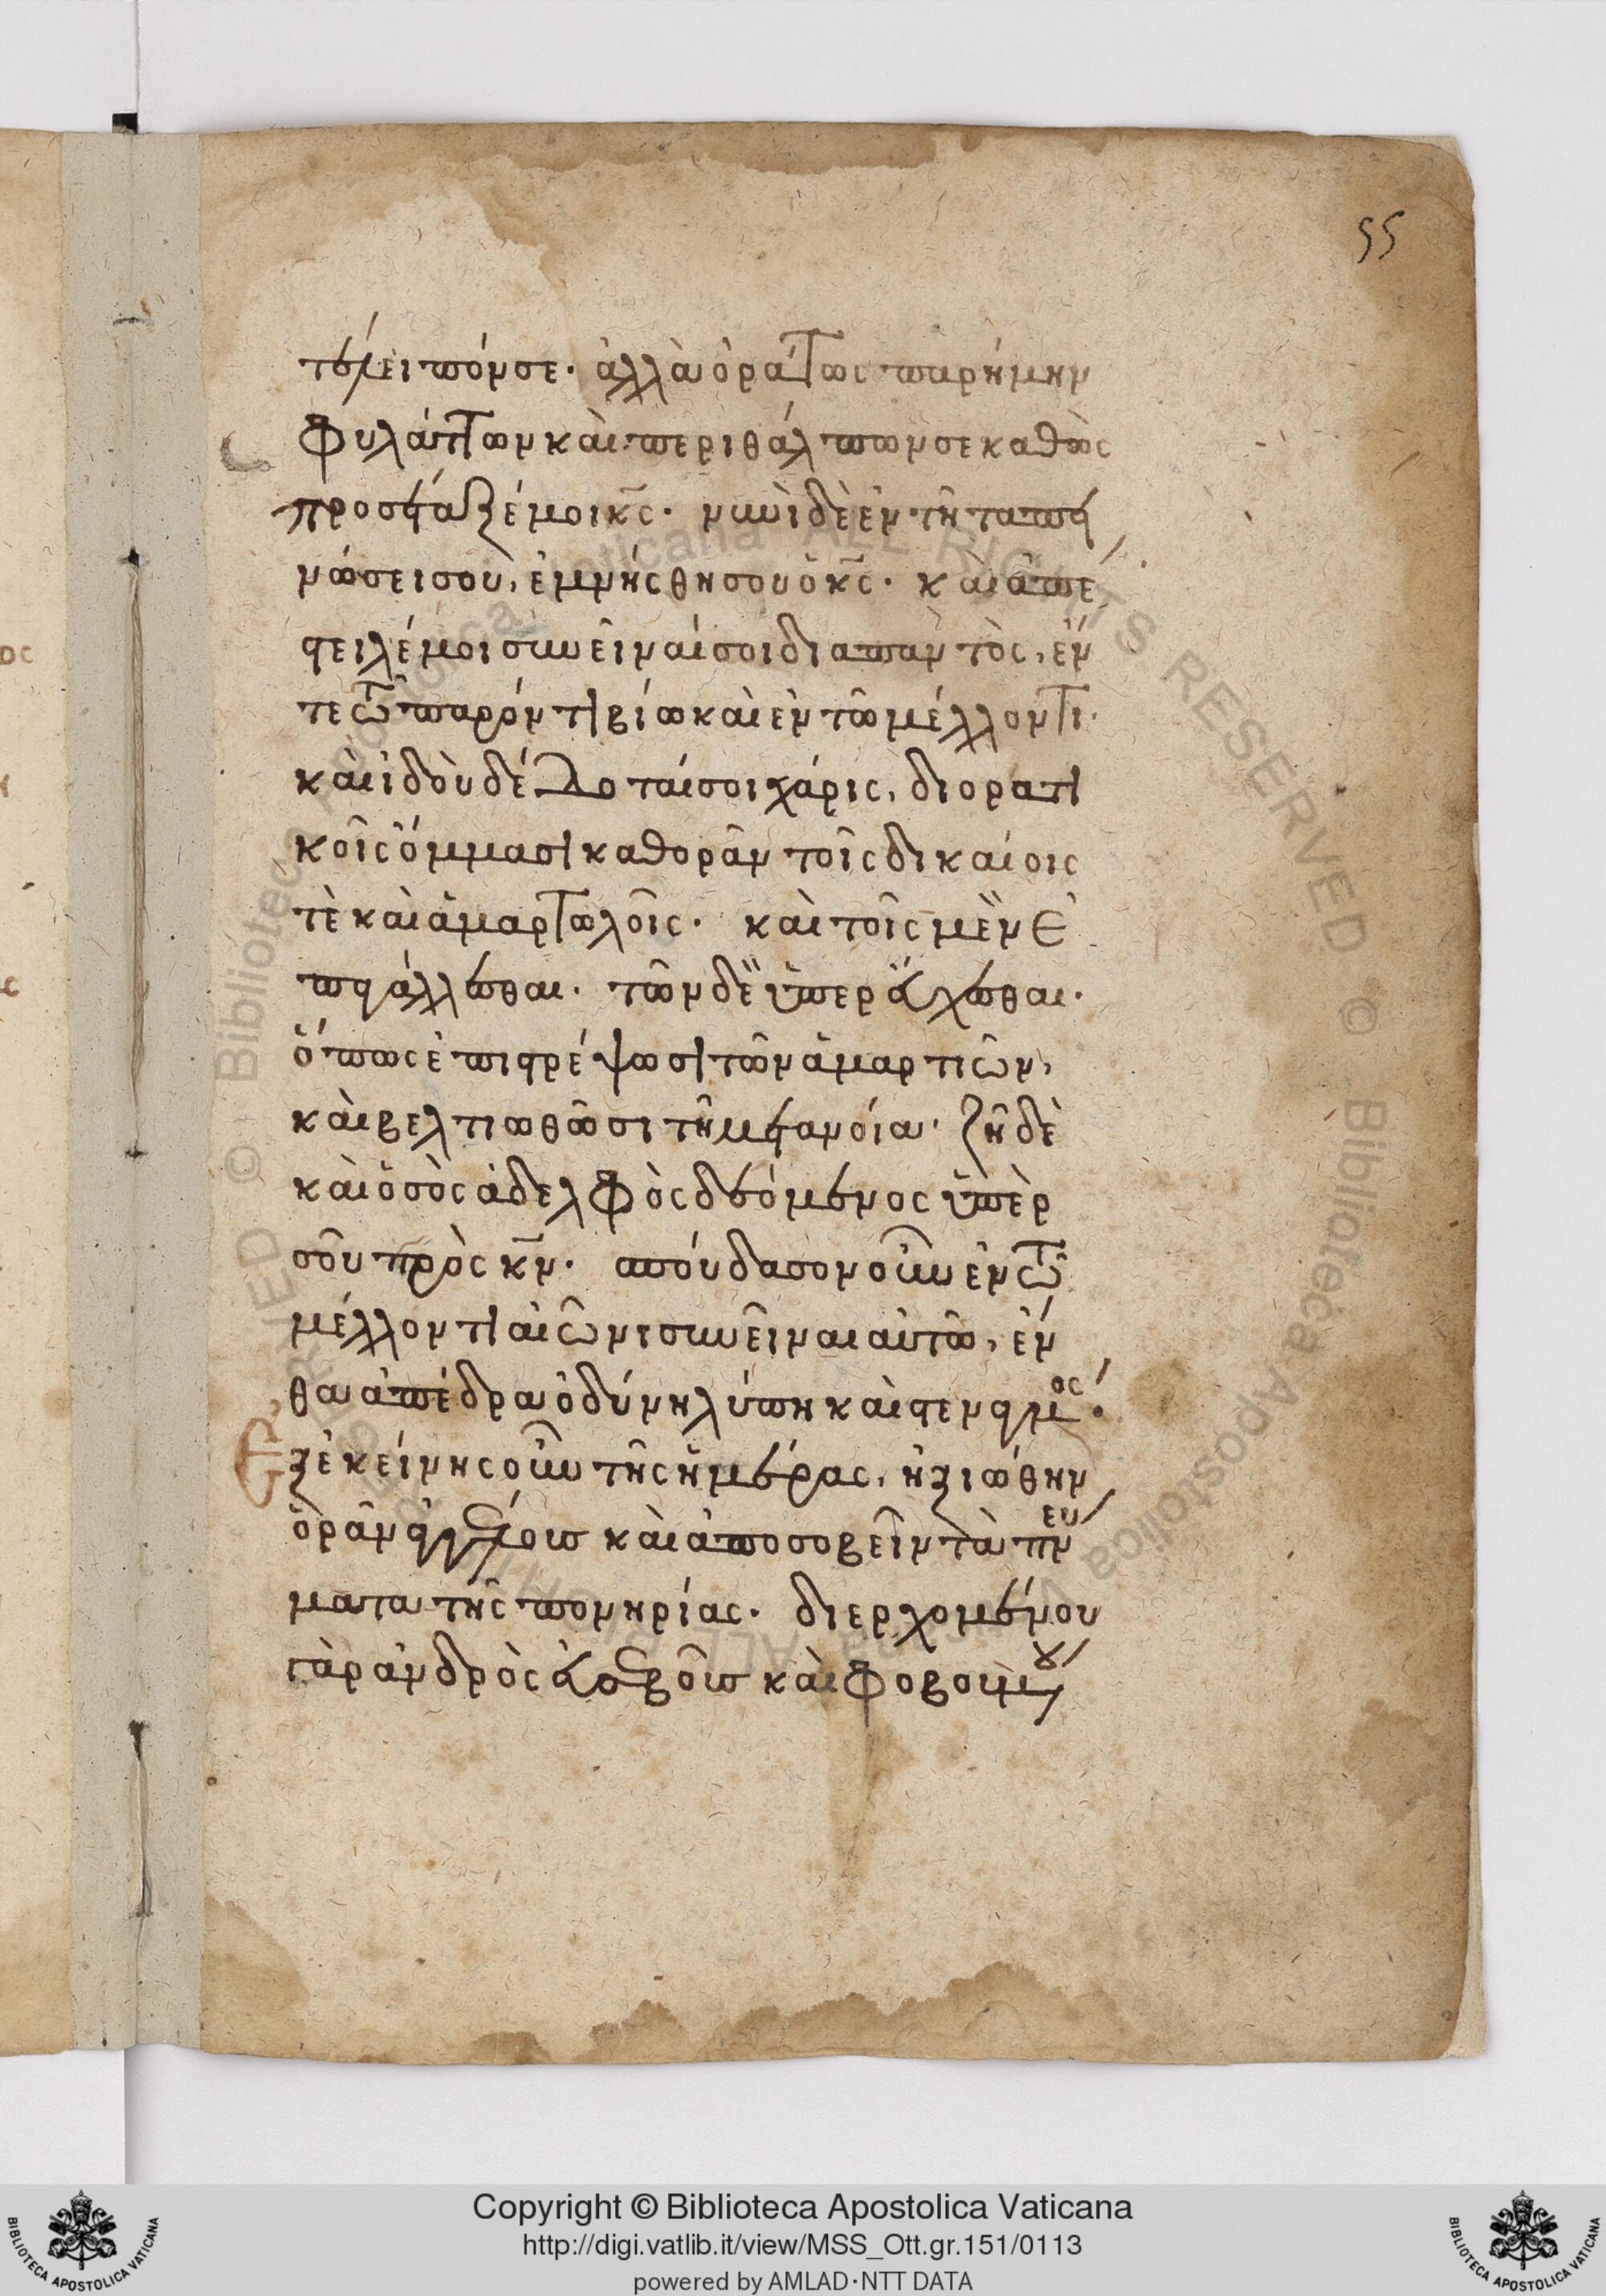 55
τέλειπόν σε· ἀλλὰ ἀοράτως παρήμην
φυλάττων καὶ περιθάλπων σε καθὼς
προσέταξέ μοι κ̅ς̅· νυνὶ δὲ ἐν τῆ ταπει
νώσει σου, ἐμνήσθη σου ὁ κ̅ς̅· καὶ ἀπέ
στειλέ μοι συνεῖναί σοι διαπαντὸς, ἔν
τε τῶ παρόντι βίω καὶ ἐν τῶ μέλλοντι·
καὶ ἰδοὺ δέδοταί σοι χάρις, διορατι
κοῖς ὄμμασι καθορᾶν τοῖς δικαίοις
τὲ καὶ ἁμαρτωλοῖς· καὶ τοῖς μὲν ἐ
παγάλλεσθαι· τῶν δὲ ὑπερεύχεσθαι·
ὅπως ἐπιστρέψωσι τῶν ἁμαρτιῶν,
καὶ βελτιωθῶσι τῆ μετανοία· ζῆ δὲ
καὶ ὁ σὸς ἀδελφὸς δεόμενος ὑπὲρ
σοῦ πρὸς κ̅ν̅· σπούδασον οὖν ἐν τῶ
μέλλοντι αἰῶνι συνεῖναι αὐτῶ, ἔν
θα ἀπέδρα ὀδύνη λύπη καὶ στεναγμός·
Ἐξ ἐκείνης οὖν τῆς ἡμέρας, ἠξιώθην
ὁρᾶν ἀγγέλους καὶ ἀποσοβεῖν τὰ πνεύ
ματα τῆς πονηρίας· διερχομένου
γὰρ ἀνδρὸς εὐσεβοῦς καὶ φοβουμένου
Copyright © Biblioteca Apostolica Vaticana
http://digi.vatlib.it/view/MSS_Ott.gr.151/0113
powered by AMLAD·NTT DATA
BIBLIOTECA APOSTOLICA VATICANA
BIBLIOTECA APOSTOLICA VATICANA